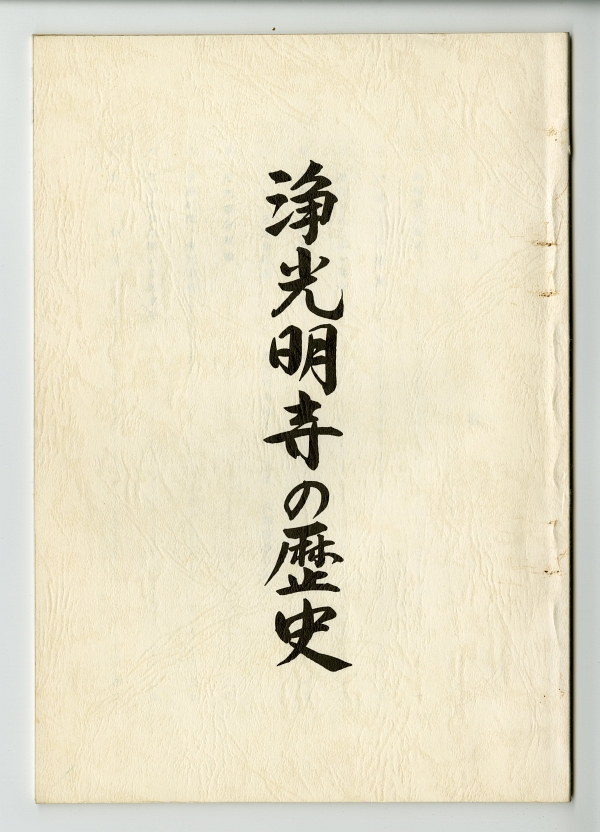 浄光明寺の歴史